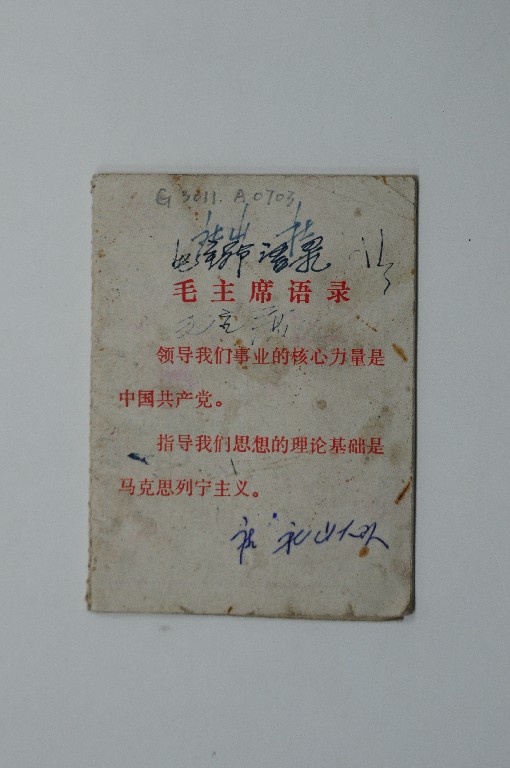 G 3011. A 0703
毛主席语录
毛主席
领导我们事业的核心力量是
中国共产党。
指导我们思想的理论基础是
马克思列宁主义。
大队